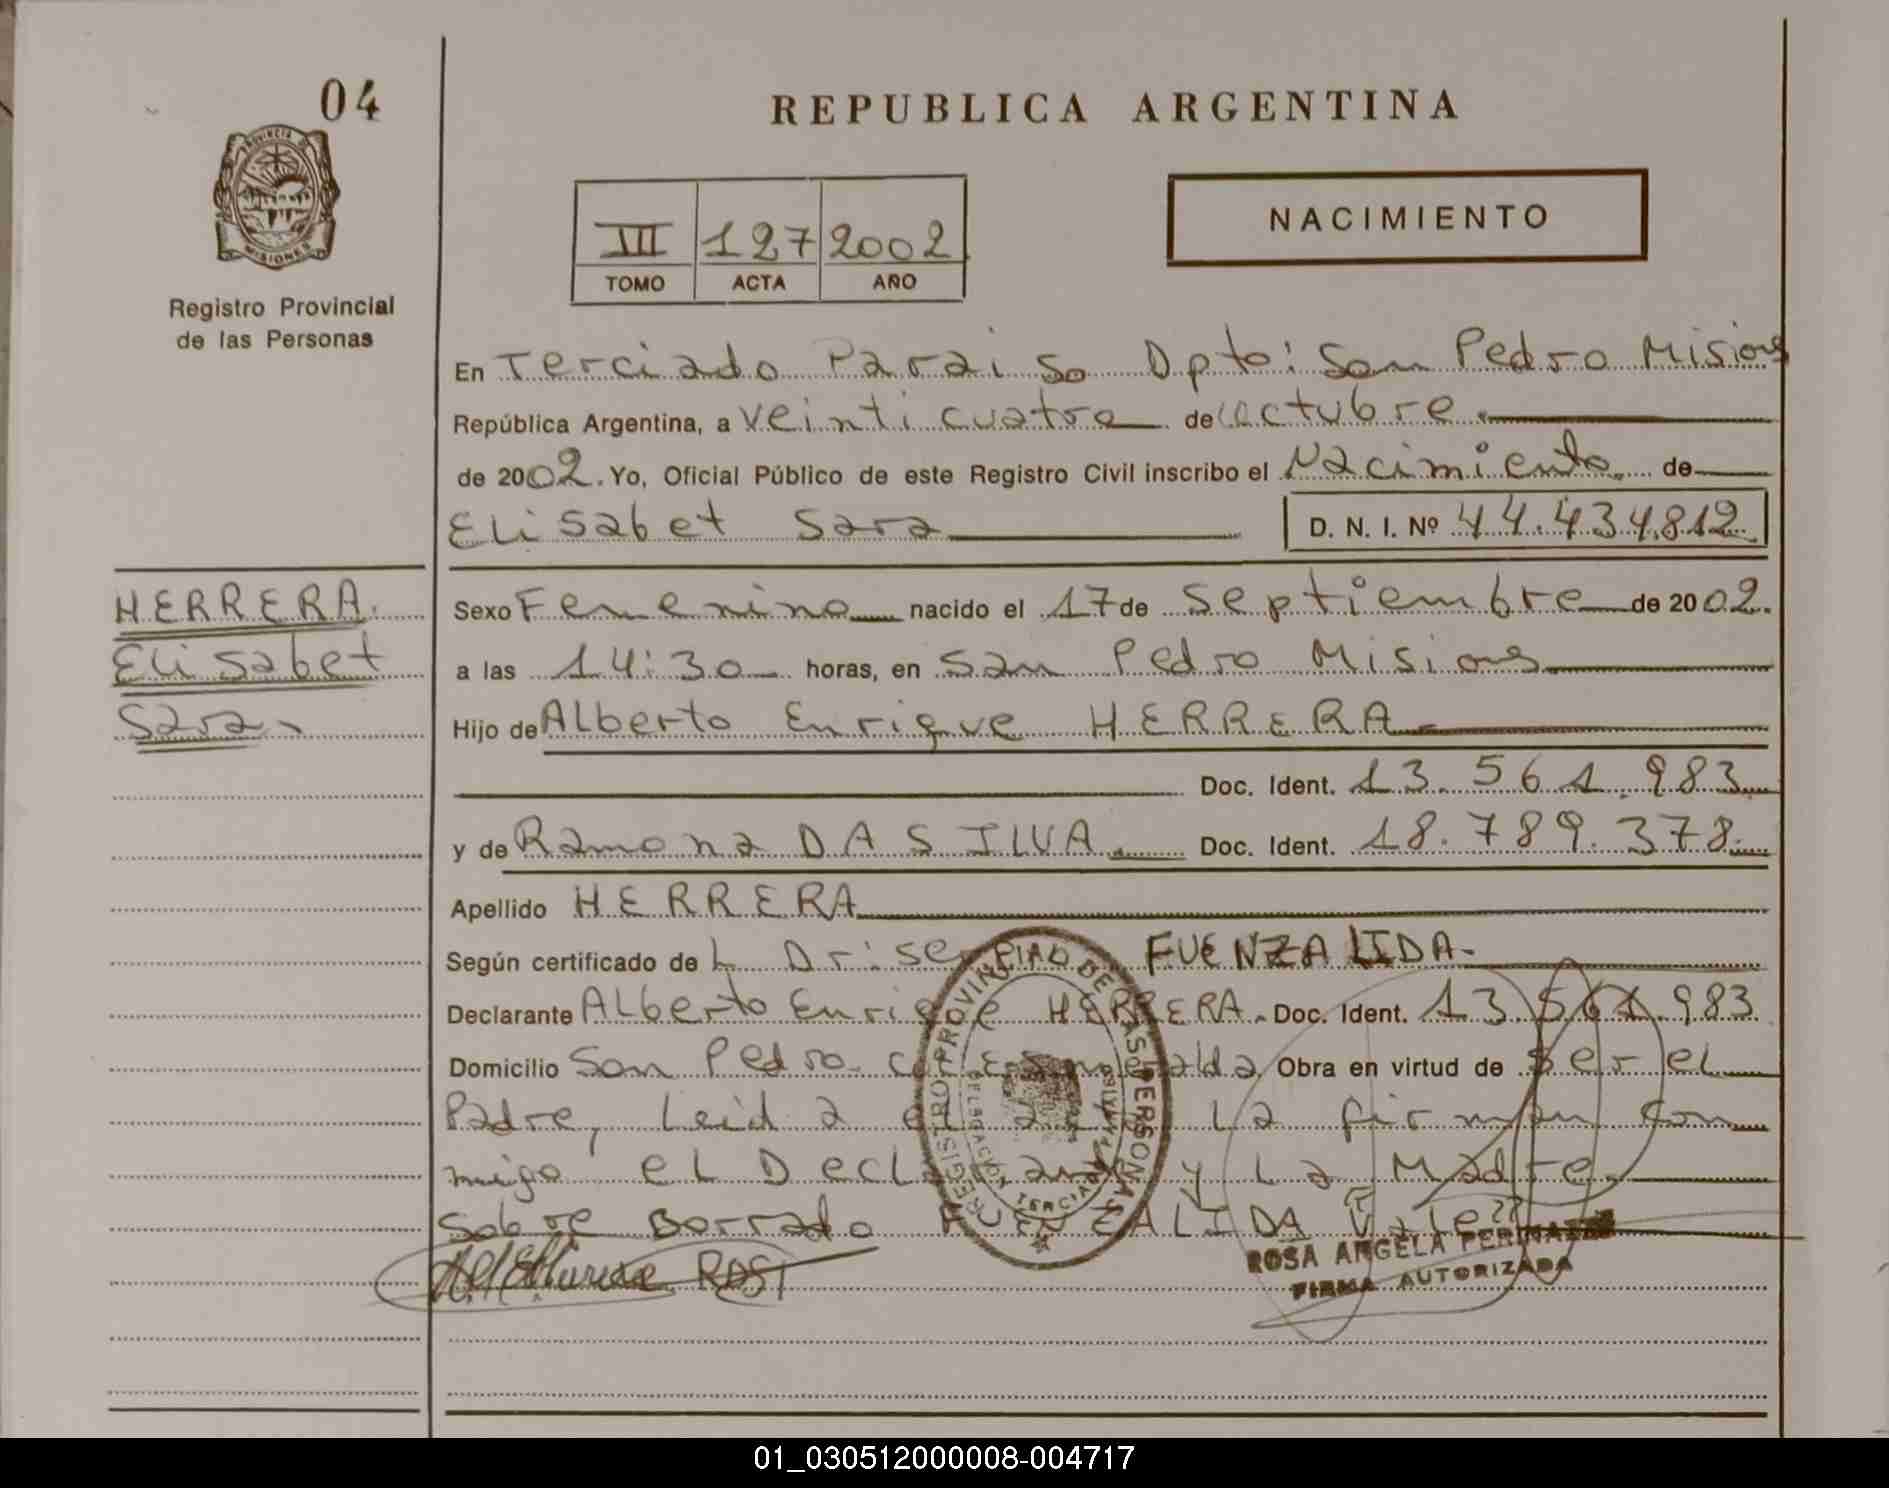 04
REPUBLICA ARGENTINA
PROVINCIA DE MISIONES
Registro Provincial
de las Personas
III 127 2002
TOMO ACTA AÑO
NACIMIENTO
En Terciado Paraiso Dpto: San Pedro Misiones
República Argentina, a veinticuatro de octubre
de 2002. Yo, Oficial Público de este Registro Civil inscribo el Nacimiento de
Elisabet Sara D. N. I. Nº 44.434.812
HERRERA
Elisabet
Sara
Sexo Femenino nacido el 17 de Septiembre de 2002.
a las 14:30 horas, en San Pedro Misiones
Hijo de Alberto Enrique HERRERA
Doc. Ident. 13.561.983
y de Ramona DA SILVA Doc. Ident. 18.789.378
Apellido HERRERA
Según certificado de L. FUENZALIDA-
Declarante Alberto Enrique HERRERA. Doc. Ident. 13.561.983
Domicilio San Pedro Obra en virtud de ser el
Padre, Leida el La firman con
migo, el Declarante y La Madre.
Sobre Borrado FUENZALIDA Vale
REGISTRO PROVINCIAL DE LAS PERSONAS
DELEGACION TERCIADO PARAISO
ROSA ANGELA
FIRMA AUTORIZADA
01_030512000008-004717